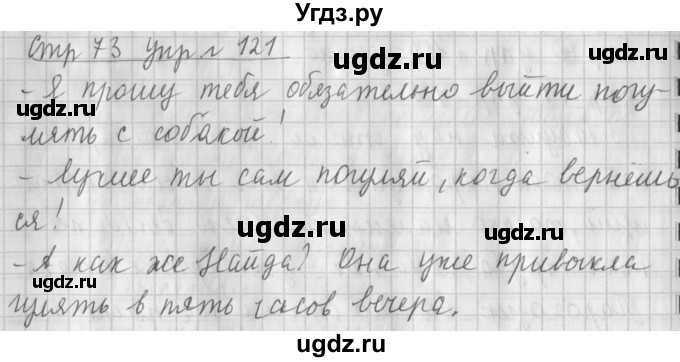 Угдз.ру
Стр 73 упр № 121
ugdz.ru
ugdz.ru
- Я прошу тебя обязательно выйти погу-
лять с собакой!
ugdz.ru
- Лучше ты сам погуляй, когда вернёшь
ся!
ugdz.ru
ugdz.ru
- А как же Найда? Она уже привыкла
гулять в пять часов вечера.
ugdz.ru
ugdz.ru
ugdz.ru